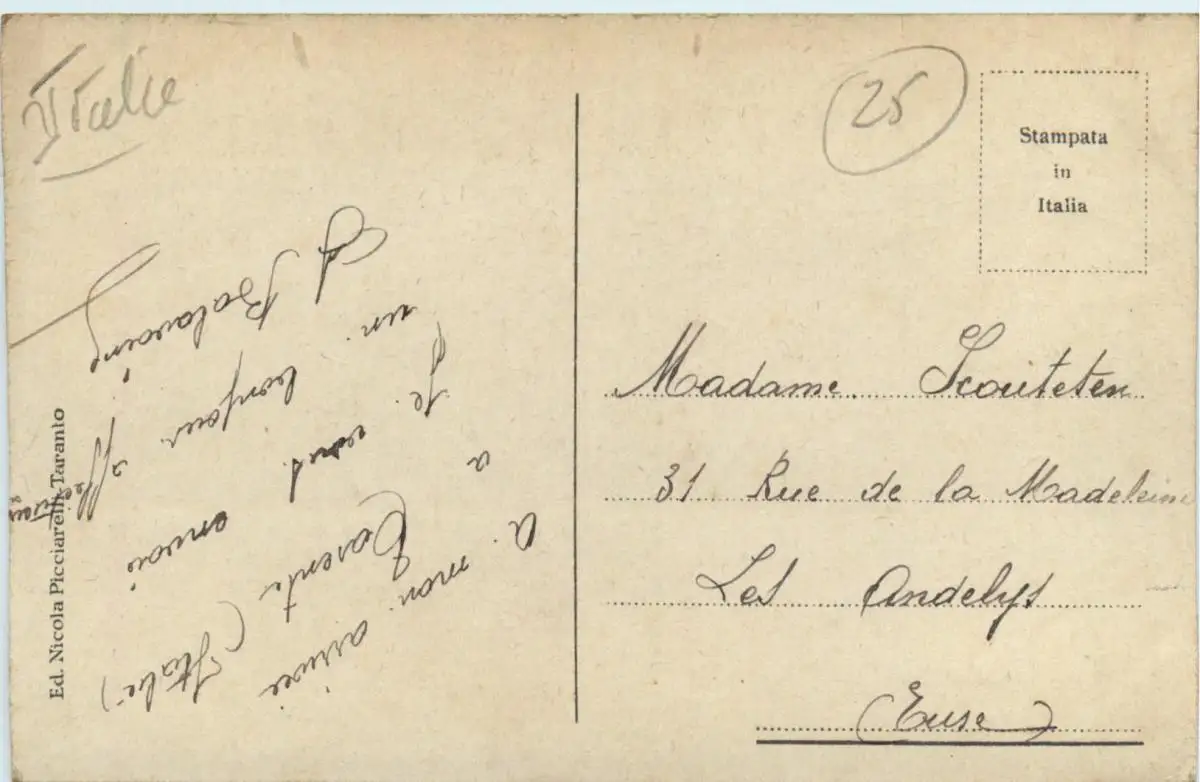 Italie
25
Stampata
in
Italia
A mon arrivée
a Tarente (Italie)
Je vous envoi
un bonjour affectueux
Madame Scouteten
31 Rue de la Madeleine
Les Andelys
(Eure)
Ed. Nicola Picciarelli, Taranto